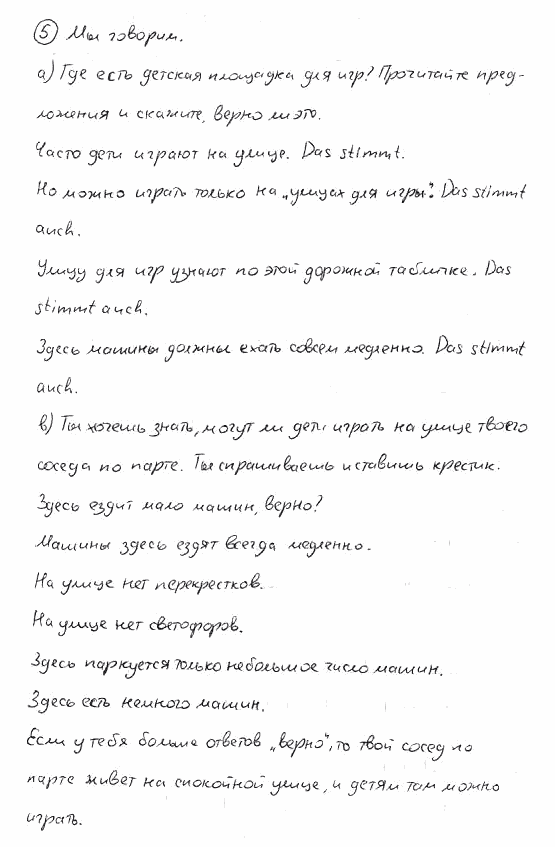 5 Мы говорим.
а) Где есть детская площадка для игр? Прочитайте пред-
ложения и скажите, верно ли это.
Часто дети играют на улице. Das stimmt.
Но можно играть только на „улицах для игры“. Das stimmt
auch.
Улицу для игр узнают по этой дорожной табличке. Das
stimmt auch.
Здесь машины должны ехать совсем медленно. Das stimmt
auch.
в) Ты хочешь знать, могут ли дети играть на улице твоего
соседа по парте. Ты спрашиваешь и ставишь крестик.
Здесь ездит мало машин, верно?
Машины здесь ездят всегда медленно.
На улице нет перекрестков.
На улице нет светофоров.
Здесь паркуется только небольшое число машин.
Здесь есть немного машин.
Если у тебя больше ответов „верно“, то твой сосед по
парте живет на спокойной улице, и детям там можно
играть.